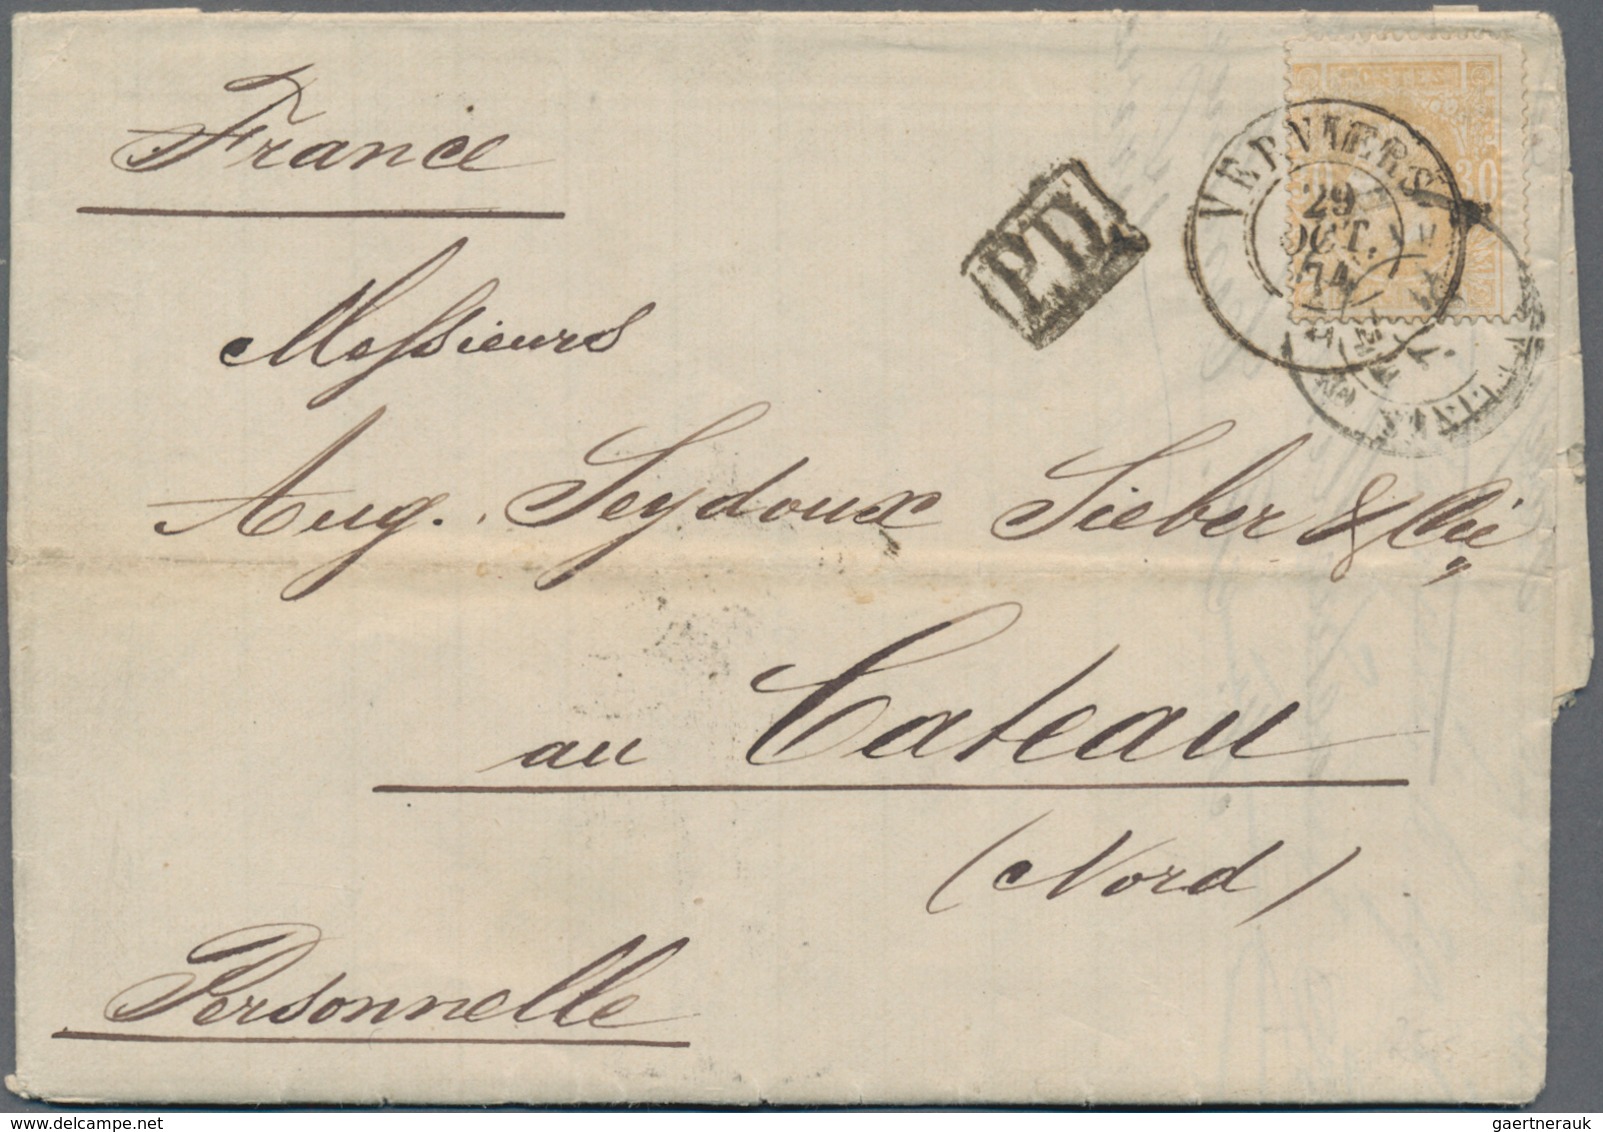 France
POSTES
30
P.D.
VERVIERS
29
OCT.
74
Messieurs
Aug. Seydoux Sieber & Cie
au Cateau
(Nord)
Personnelle
gaertnerauk